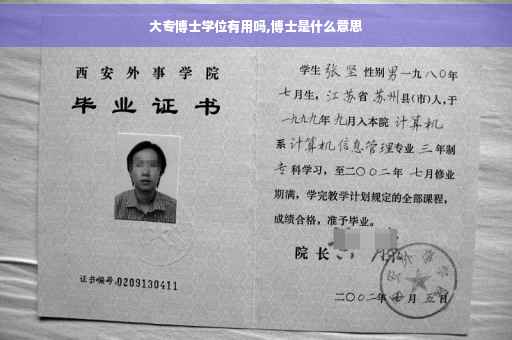 大专博士学位有用吗,博士是什么意思
西安外事学院
毕业证书
证书编号:0209130411
学生 张坚 性别 男 一九八〇年
七月生，江苏省 苏州县(市)人,于
一九九九年 九月入本院 计算机
系 计算机信息管理专业 三 年制
专科学习，至二〇〇二年 七月修业
期满，学完教学计划规定的全部课程，
成绩合格，准予毕业。
院长
二〇〇二年 月 五日